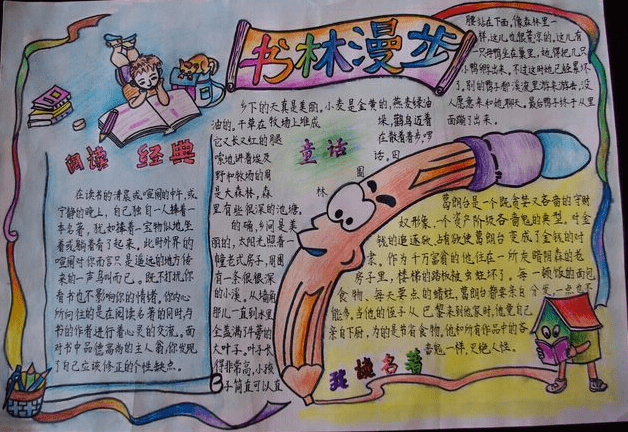 书林漫步
阅读 经典
在读书的清晨或喧闹的中午，或
宁静的晚上，自己独自一人捧着一
本名著，犹如捧着一宝物似地，坐
着或躺着看了起来，此时外界的
喧闹对你而言只是遥远的地方传
来的一声鸟叫而已。既不打扰你
看书也不影响你的情绪，你内心
所向往的是在阅读名著的同时，与
书的作者进行着心灵的交流。面
对书中品德高尚的主人翁，你发现
了自己应该修正的个性缺点。
童话
乡下的天真是美丽。小麦是金黄的，燕麦绿油
油的。干草在牧场上堆成垛，鹳鸟迈着
它又长又红的腿在散着步，啰
嗦地讲着埃及话。田
野和牧场的周围
是大森林，森林
里有些很深的池塘。
的确，乡间是美
丽的，太阳光照着一
幢老式房子，周围
有一条很深
的小溪。从墙角
那儿一直到水里
全盖满了牛蒡的
大叶子。叶子长
得非常高，小孩
子简直可以直
腰站在下面，像森林里一
样，这儿也很荒凉的。这儿有
一只母鸭坐在巢里，她得把几只
小鸭孵出来，不过这时她已经累坏
了。别的鸭子都溪流里游来游去，没
人愿意来和她聊天。最后鸭子终于从里
面蹦了出来。
我读名著
葛朗台是一个既贪婪又吝啬的守财
奴形象，一个资产阶级吝啬鬼的典型，对金
钱的追逐欲、占有欲使葛朗台变成了金钱的对
家，作为十万富翁的他，住在一所灰暗阴森的老
房子里，楼梯的踏板被虫蛀坏了。每一顿饭的面包
食物、每天要点的蜡烛，葛朗台都要亲自分发一点也不
能多，当他的侄子从巴黎来到他家时，他竟自己
亲自下厨，为的是节省食物，他和所有作品中的吝
啬鬼一样，灭绝人性。